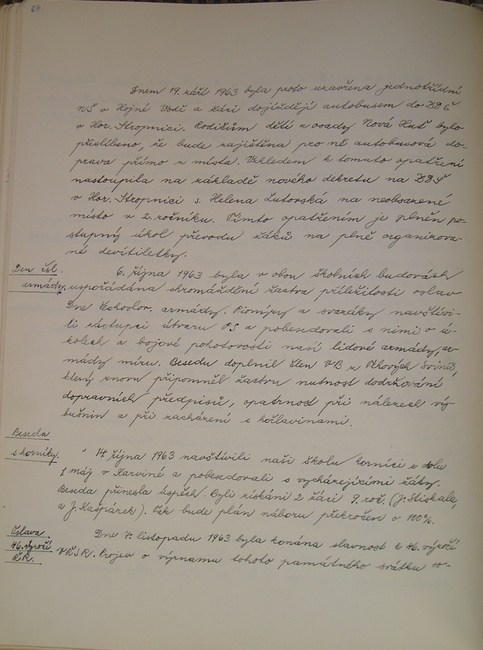 69
Dnem 19. září 1963 byla proto uzavřena jednotřídní
NŠ v Hojné Vodě a žáci dojíždějí autobusem do ZDŠ
v Hor. Stropnici. Rodičům dětí z osady Nová Huť bylo
přislíbeno, že bude zajištěna pro ně autobusová do-
prava přímo z místa. Vzhledem k tomuto opatření
nastoupila na základě nového dekretu na ZDŠ
v Hor. Stropnici s. Helena Lutovská na neobsazené
místo v 2. ročníku. Tímto opatřením je plněn po-
stupný úkol převodu žáků na plně organizova-
né devítiletky.
Den čsl.
armády.
6. října 1963 byla v obou školních budovách
uspořádána shromáždění žactva příležitosti oslav
Dne Českoslov. armády. Pionýry a svazáky navštívi-
li zástupci útvaru PS a pobesedovali s nimi o ú-
kolech a bojové pohotovosti naší lidové armády, ar-
mády míru. Besedu doplnil člen VB z Trhových Svinů,
který znovu připomněl žactvu nutnost dodržování
dopravních předpisů, opatrnost při nálezech vý-
bušnin a při zacházení s hořlavinami.
Beseda
s horníky.
14. října 1963 navštívili naši školu horníci z dolu
1. máj v Karviné a pobesedovali s vycházejícími žáky.
Beseda přinesla úspěch. Byli získáni 2 žáci 9. roč. (J. Stískala,
a J. Kašpárek). Tak bude plán náboru překročen o 100%.
Oslava
46. výročí
VŘSR.
Dne 7. listopadu 1963 byla konána slavnost k 46. výročí
VŘSR. Projev o významu tohoto památného svátku